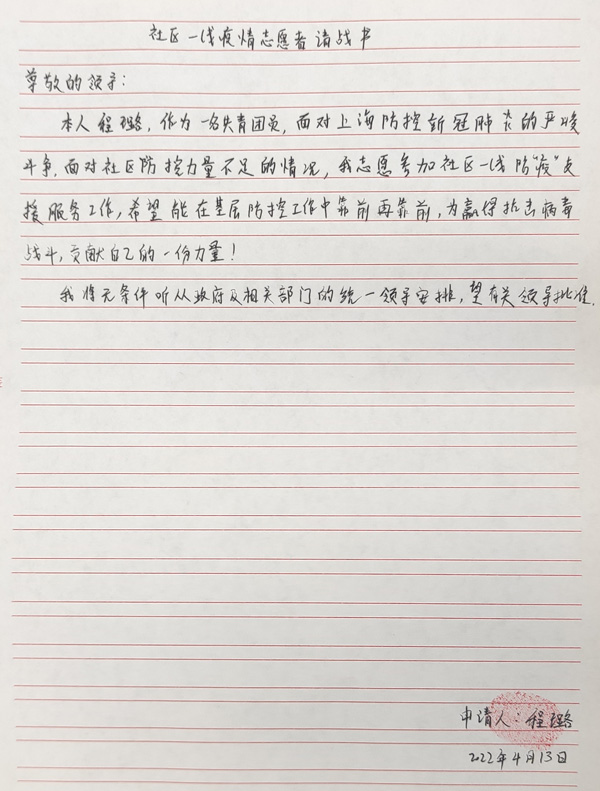 社区一线疫情志愿者请战书
尊敬的领导：
本人程璐，作为一名共青团员，面对上海防控新冠肺炎的严峻
斗争，面对社区防控力量不足的情况，我志愿参加社区一线防“疫”支
援服务工作，希望能在基层防控工作中靠前再靠前，为赢得抗击病毒
战斗，贡献自己的一份力量！
我将无条件听从政府及相关部门的统一领导安排，望有关领导批准。
申请人：程璐
2022年4月13日